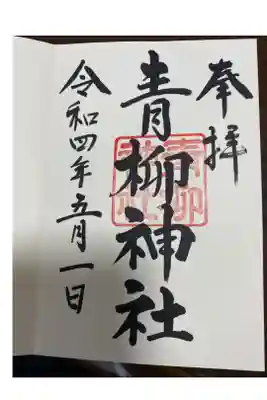 奉拝
青柳神社
令和四年五月一日